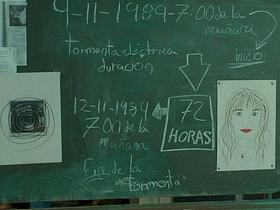 9-11-1989-7:00 de la
mañana
inicio
tormenta eléctrica
duración
12-11-1989
7:00 de la
mañana
72
HORAS
fin de la
tormenta